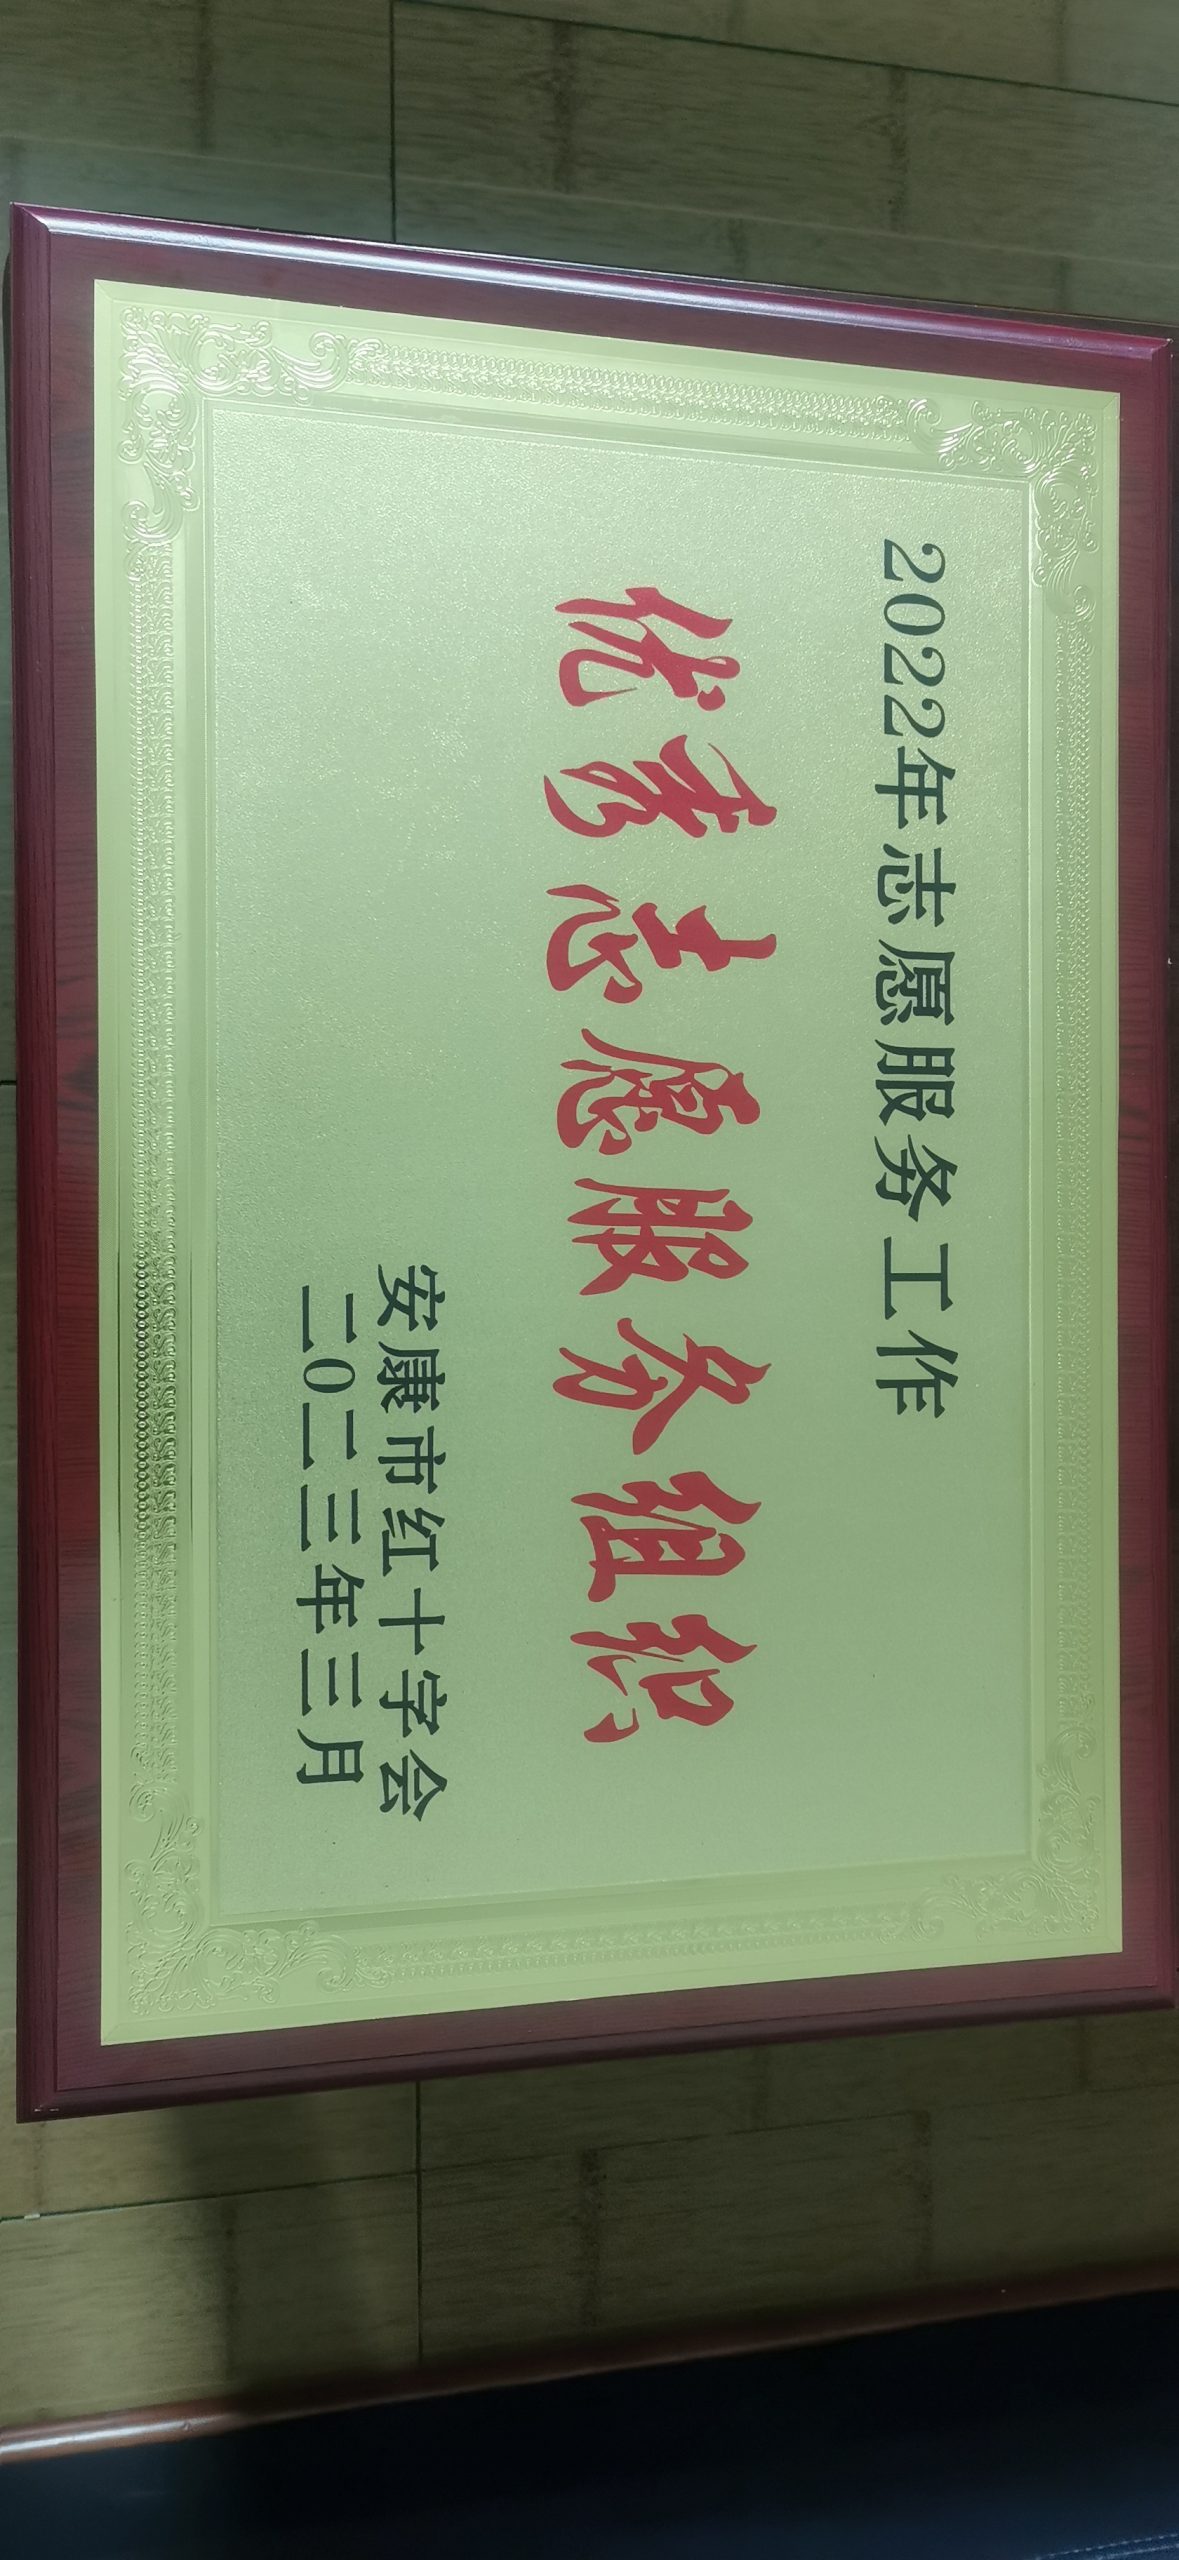 2022年志愿服务工作
优秀志愿服务组织
安康市红十字会
二0二三年三月